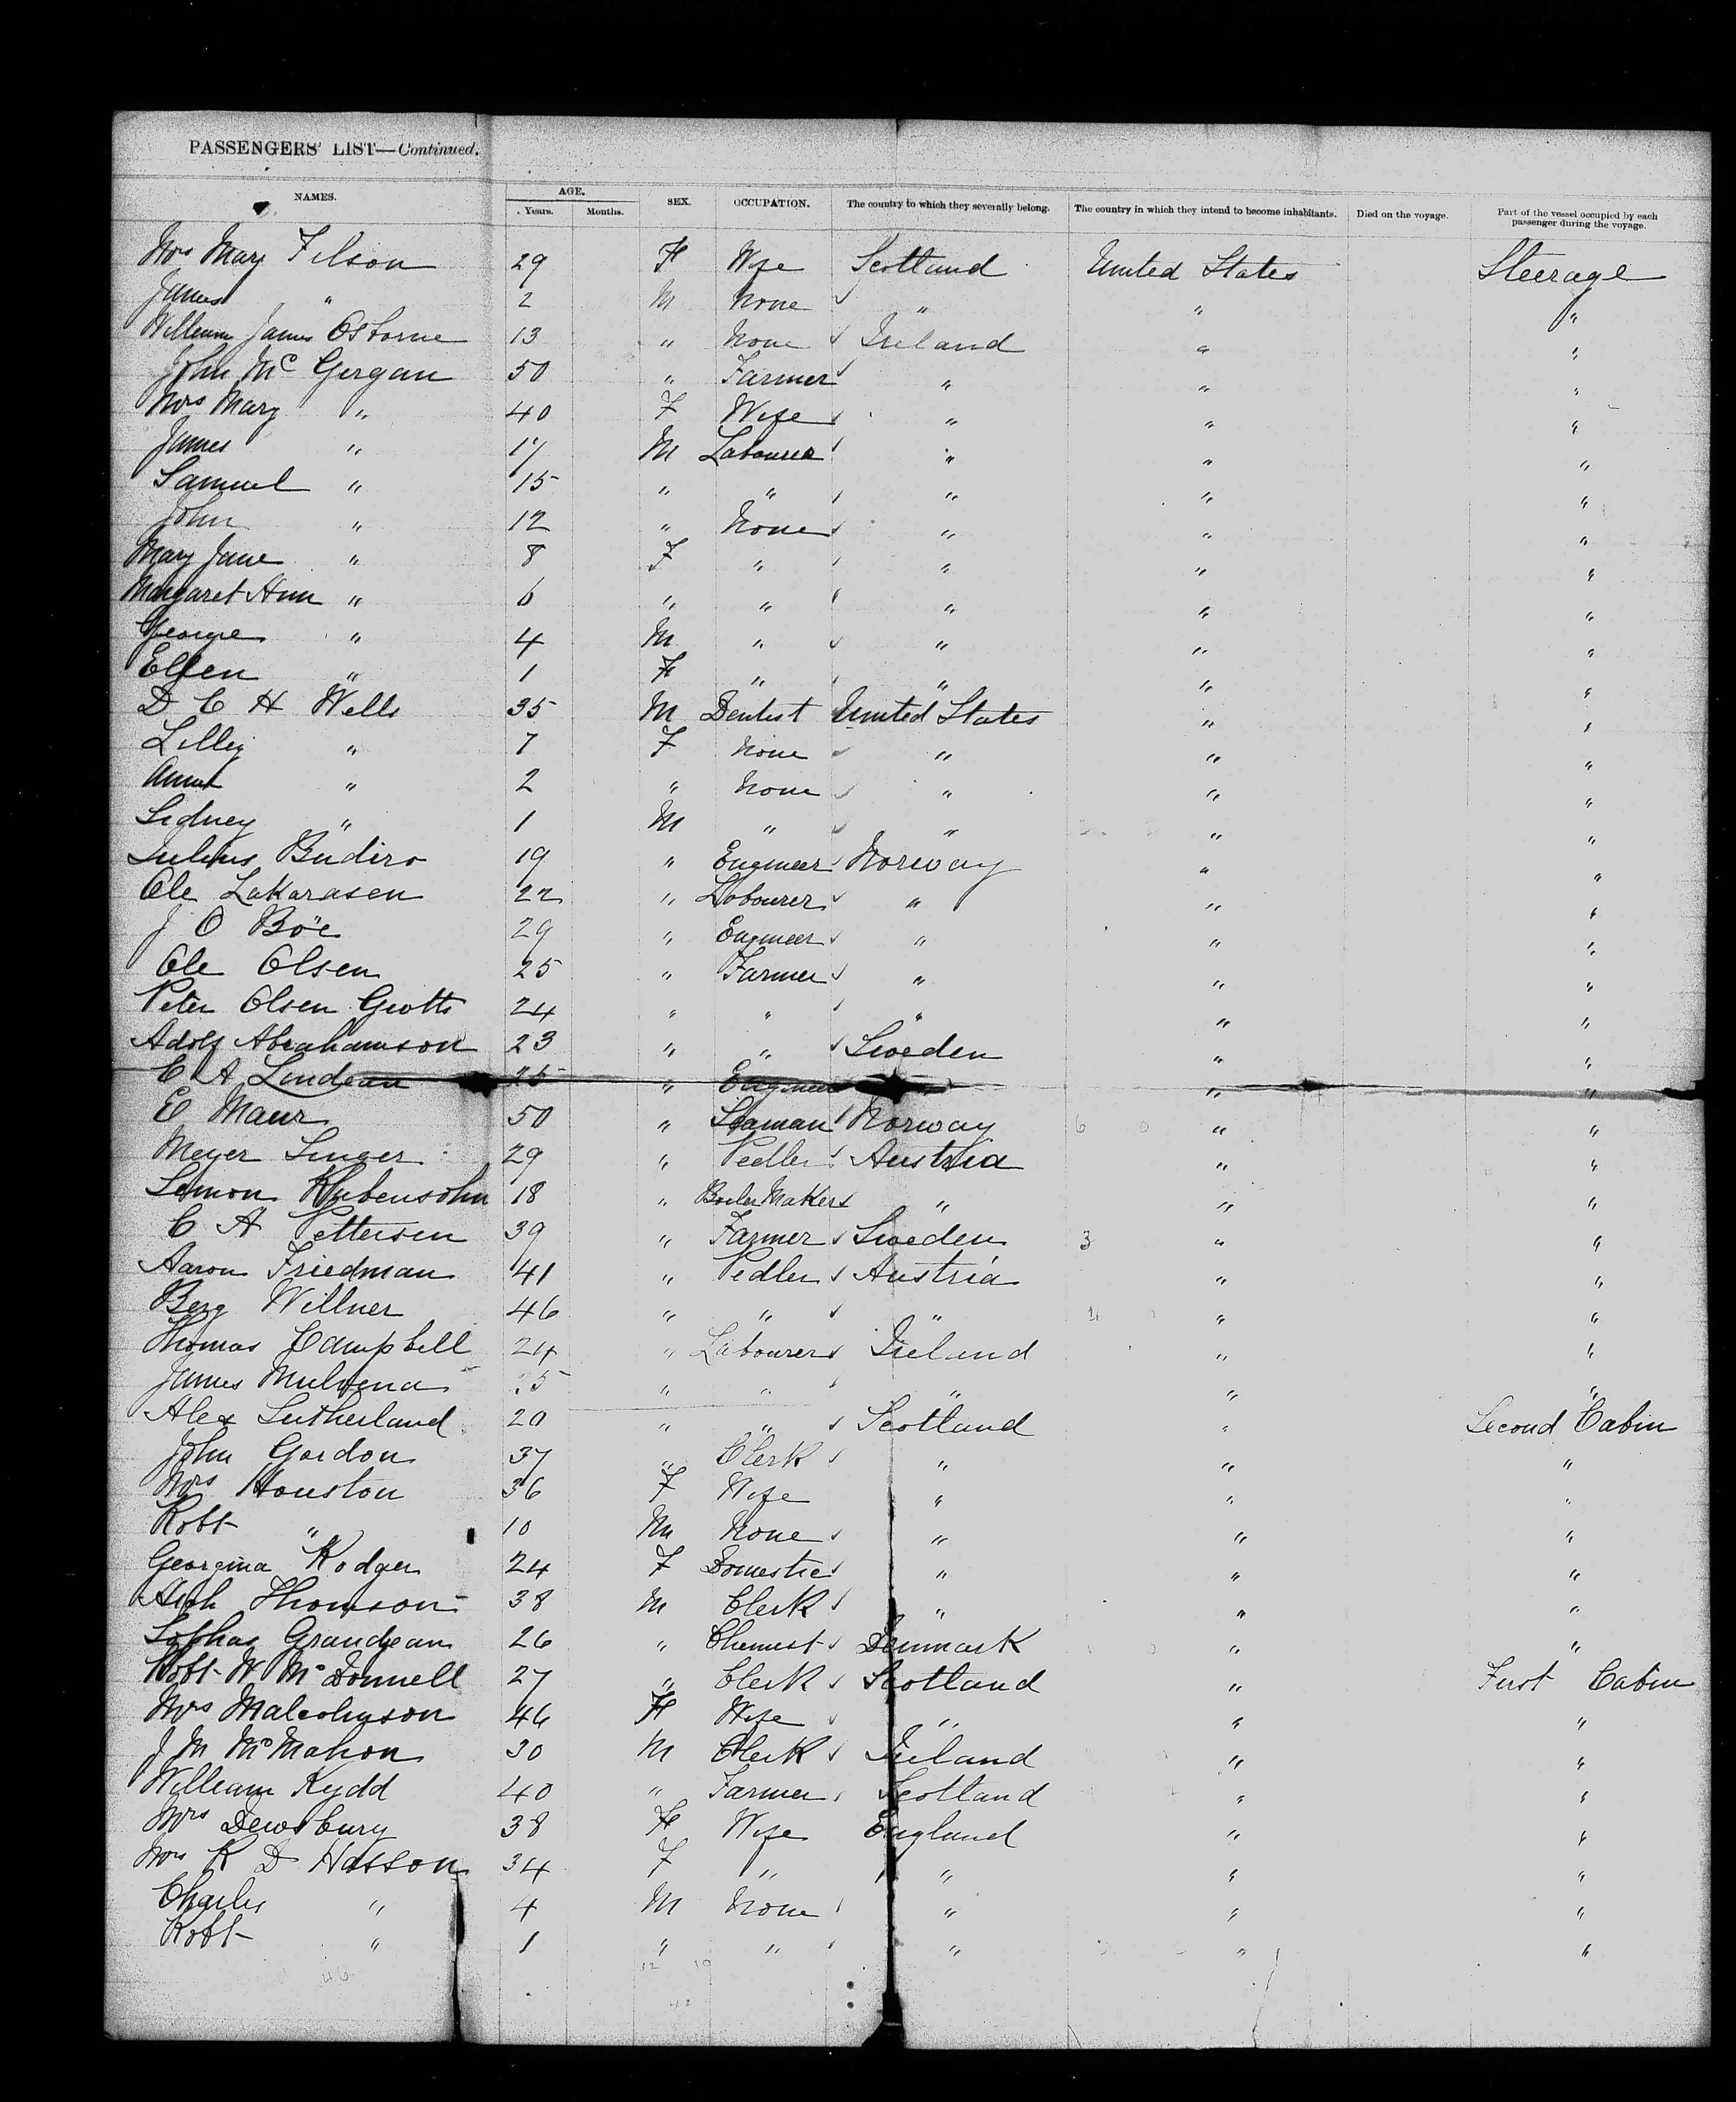 PASSENGERS' LIST—Continued.
NAMES. AGE. Years. Months. SEX. OCCUPATION. The country to which they severally belong. The country in which they intend to become inhabitants. Died on the voyage. Part of the vessel occupied by each passenger during the voyage.
Mrs Mary Filson 29 F Wife Scotland United States Steerage
James " 2 M None " " "
William James Osborne 13 " None Ireland " "
John Mc Gergan 50 " Farmer " " "
Mrs Mary " 40 F Wife " " "
James " 17 M Labourer " " "
Samuel " 15 " " " " "
John " 12 " None " " "
Mary Jane " 8 F " " " "
Margaret Ann " 6 " " " " "
George " 4 M " " " "
Ellen " 1 F " " " "
D C H Wells 35 M Dentist United States " "
Lilly " 7 F None " " "
" 2 " None " " "
Sidney " 1 M " " " "
Julius Budiro 19 " Engineer Norway " "
Ole Lakarasen 22 " Labourer " " "
J O Böe 29 " Engineer " " "
Ole Olsen 25 " Farmer " " "
Peter Olsen Grotts 24 " " " " "
Adolf Abrahamson 23 " " Sweden " "
C A Lindean 25 " Engineer " "
E Maur 50 " Seaman Norway " "
Meyer Singer 29 " Pedler Austria " "
Semon Rubensohn 18 " Boiler Maker " " "
C A Pettersen 39 " Farmer Sweden 3 " "
Aaron Friedman 41 " Pedler Austria " "
Berg Willner 46 " " " " "
Thomas Campbell 24 " Labourer Ireland " "
James Mulvena " " " " "
Alex Sutherland 20 " " Scotland " Second Cabin
John Gordon 37 " Clerk " " "
Mrs Houston 36 F Wife " " "
Robt " 10 M None " " "
Georgina Rodger 24 F Domestic " " "
Arch Thomson 38 M Clerk " " "
Sophas Grandjean 26 " Chemist Denmark " "
Robt W McDonnell 27 " Clerk Scotland " First Cabin
Mrs Malcolmson 46 F Wife " " "
J M McMahon 30 M Clerk Ireland " "
William Kydd 40 " Farmer Scotland " "
Mrs Dewsbury 38 F Wife England " "
Mrs R D Hasson 34 F " " " "
Charles " 4 M None " " "
Robt " 1 " " " " "